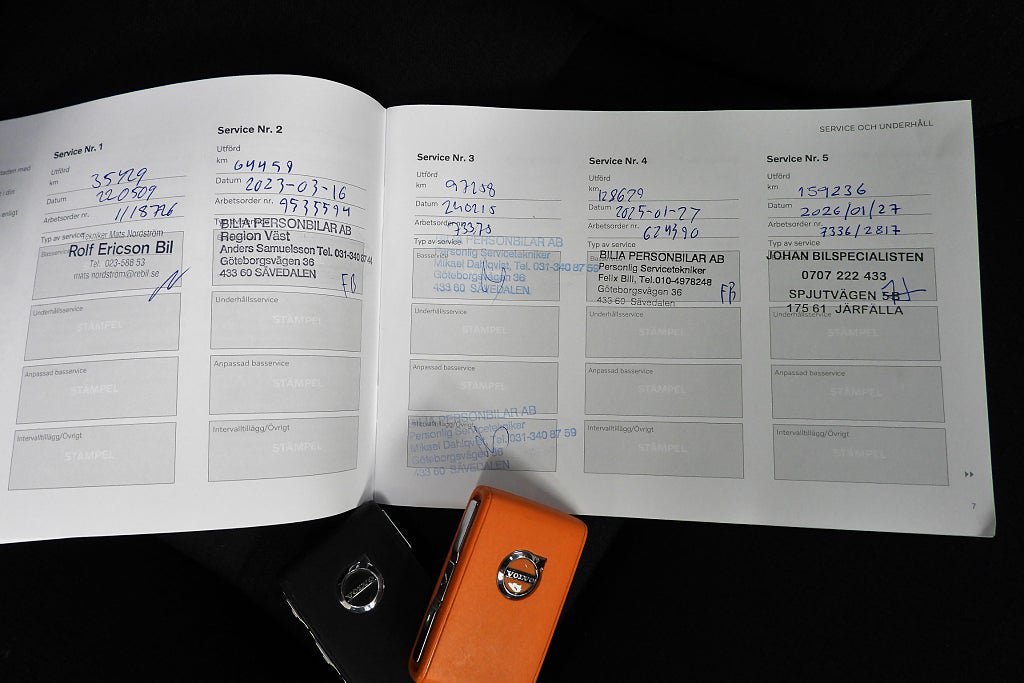 SERVICE OCH UNDERHÅLL
Service Nr. 1
Utförd
km 35429
Datum 220509
Arbetsorder nr. 1118726
Typ av service
Tekniker Mats Nordström
Rolf Ericson Bil
Tel. 023-588 53
mats.nordström@rebil.se
STÄMPEL
Anpassad basservice
STÄMPEL
Intervalltillägg/Övrigt
STÄMPEL
Service Nr. 2
Utförd
km 64459
Datum 2023-03-16
Arbetsorder nr. 9535594
BILIA PERSONBILAR AB
Region Väst
Anders Samuelsson Tel. 031-340 87 44
Göteborgsvägen 36
433 60 SÄVEDALEN
FB
Underhållsservice
STÄMPEL
Anpassad basservice
STÄMPEL
Intervalltillägg/Övrigt
STÄMPEL
Service Nr. 3
Utförd
km 97258
Datum 240215
Arbetsorder 73373
Typ av service
BILIA PERSONBILAR AB
Personlig Servicetekniker
Mikael Dahlqvist, Tel. 031-340 87 59
Göteborgsvägen 36
433 60 SÄVEDALEN
Underhållsservice
STÄMPEL
Anpassad basservice
STÄMPEL
Intervalltillägg/Övrigt
BILIA PERSONBILAR AB
Personlig Servicetekniker
Mikael Dahlqvist, Tel. 031-340 87 59
Göteborgsvägen 36
433 60 SÄVEDALEN
Service Nr. 4
Utförd
km 128679
Datum 2025-01-27
Arbetsorder nr. 624390
Typ av service
BILIA PERSONBILAR AB
Personlig Servicetekniker
Felix Bill, Tel.010-4978248
Göteborgsvägen 36
433 60 SÄVEDALEN
FB
Underhållsservice
STÄMPEL
Anpassad basservice
STÄMPEL
Intervalltillägg/Övrigt
STÄMPEL
Service Nr. 5
Utförd
km 159236
Datum 2026/01/27
Arbetsorder nr. 7336/2817
Typ av service
JOHAN BILSPECIALISTEN
0707 222 433
SPJUTVÄGEN 5B
175 61 JÄRFÄLLA
STÄMPEL
Anpassad basservice
STÄMPEL
Intervalltillägg/Övrigt
STÄMPEL
7
VOLVO
VOLVO